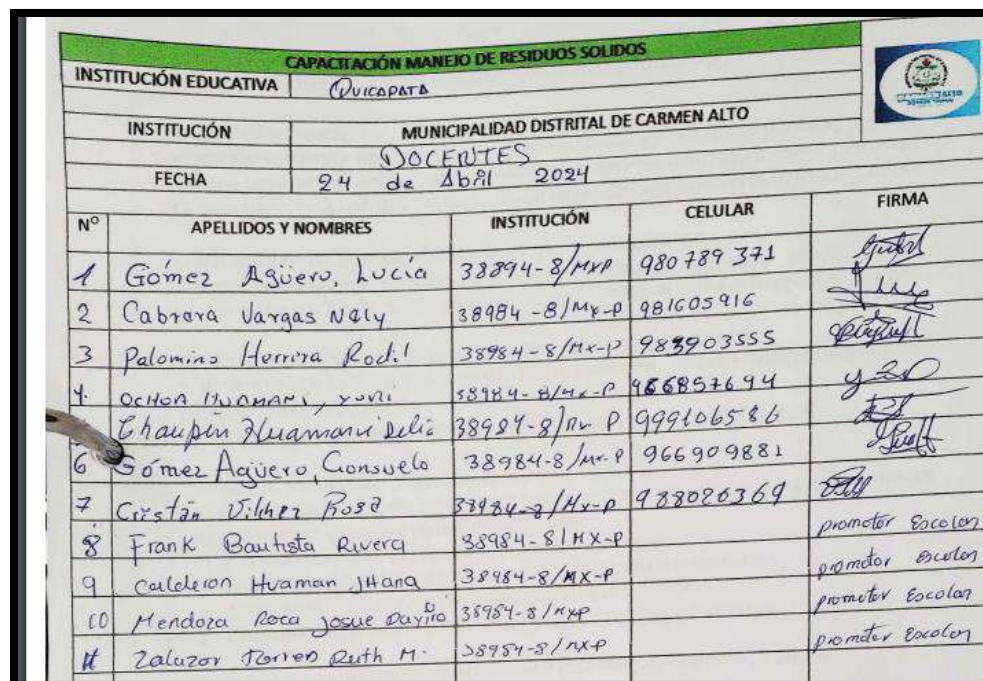 CAPACITACIÓN MANEJO DE RESIDUOS SOLIDOS
INSTITUCIÓN EDUCATIVA QUICAPATA
INSTITUCIÓN MUNICIPALIDAD DISTRITAL DE CARMEN ALTO
DOCENTES
FECHA 24 de Abril 2024
N° APELLIDOS Y NOMBRES INSTITUCIÓN CELULAR FIRMA
1 Gómez Agüero, Lucía 38894-8/MxP 980789371
2 Cabrera Vargas Nely 38984-8/Mx-P 981605916
3 Palomino Herrera Rodil 38984-8/Mx-P 983903555
4. OCHOA HUAMANI, YURI 38984-8/Mx-P 966857694
Chaupin Huamani Delia 38984-8/Mx P 999106586
6 Gómez Agüero, Consuelo 38984-8/Mx-P 966909881
7 Cristán Vilchez Rosa 38984-8/Mx-P 988026369
8 Frank Bautista Rivera 38984-8/MX-P promotor Escolar
9 Calderon Huaman JHana 38984-8/MX-P promotor Escolar
10 Mendoza Roca Josue 38984-8/MXP promotor Escolar
11 Zalazor Torres Ruth M. 38984-8/MX-P promotor Escolar